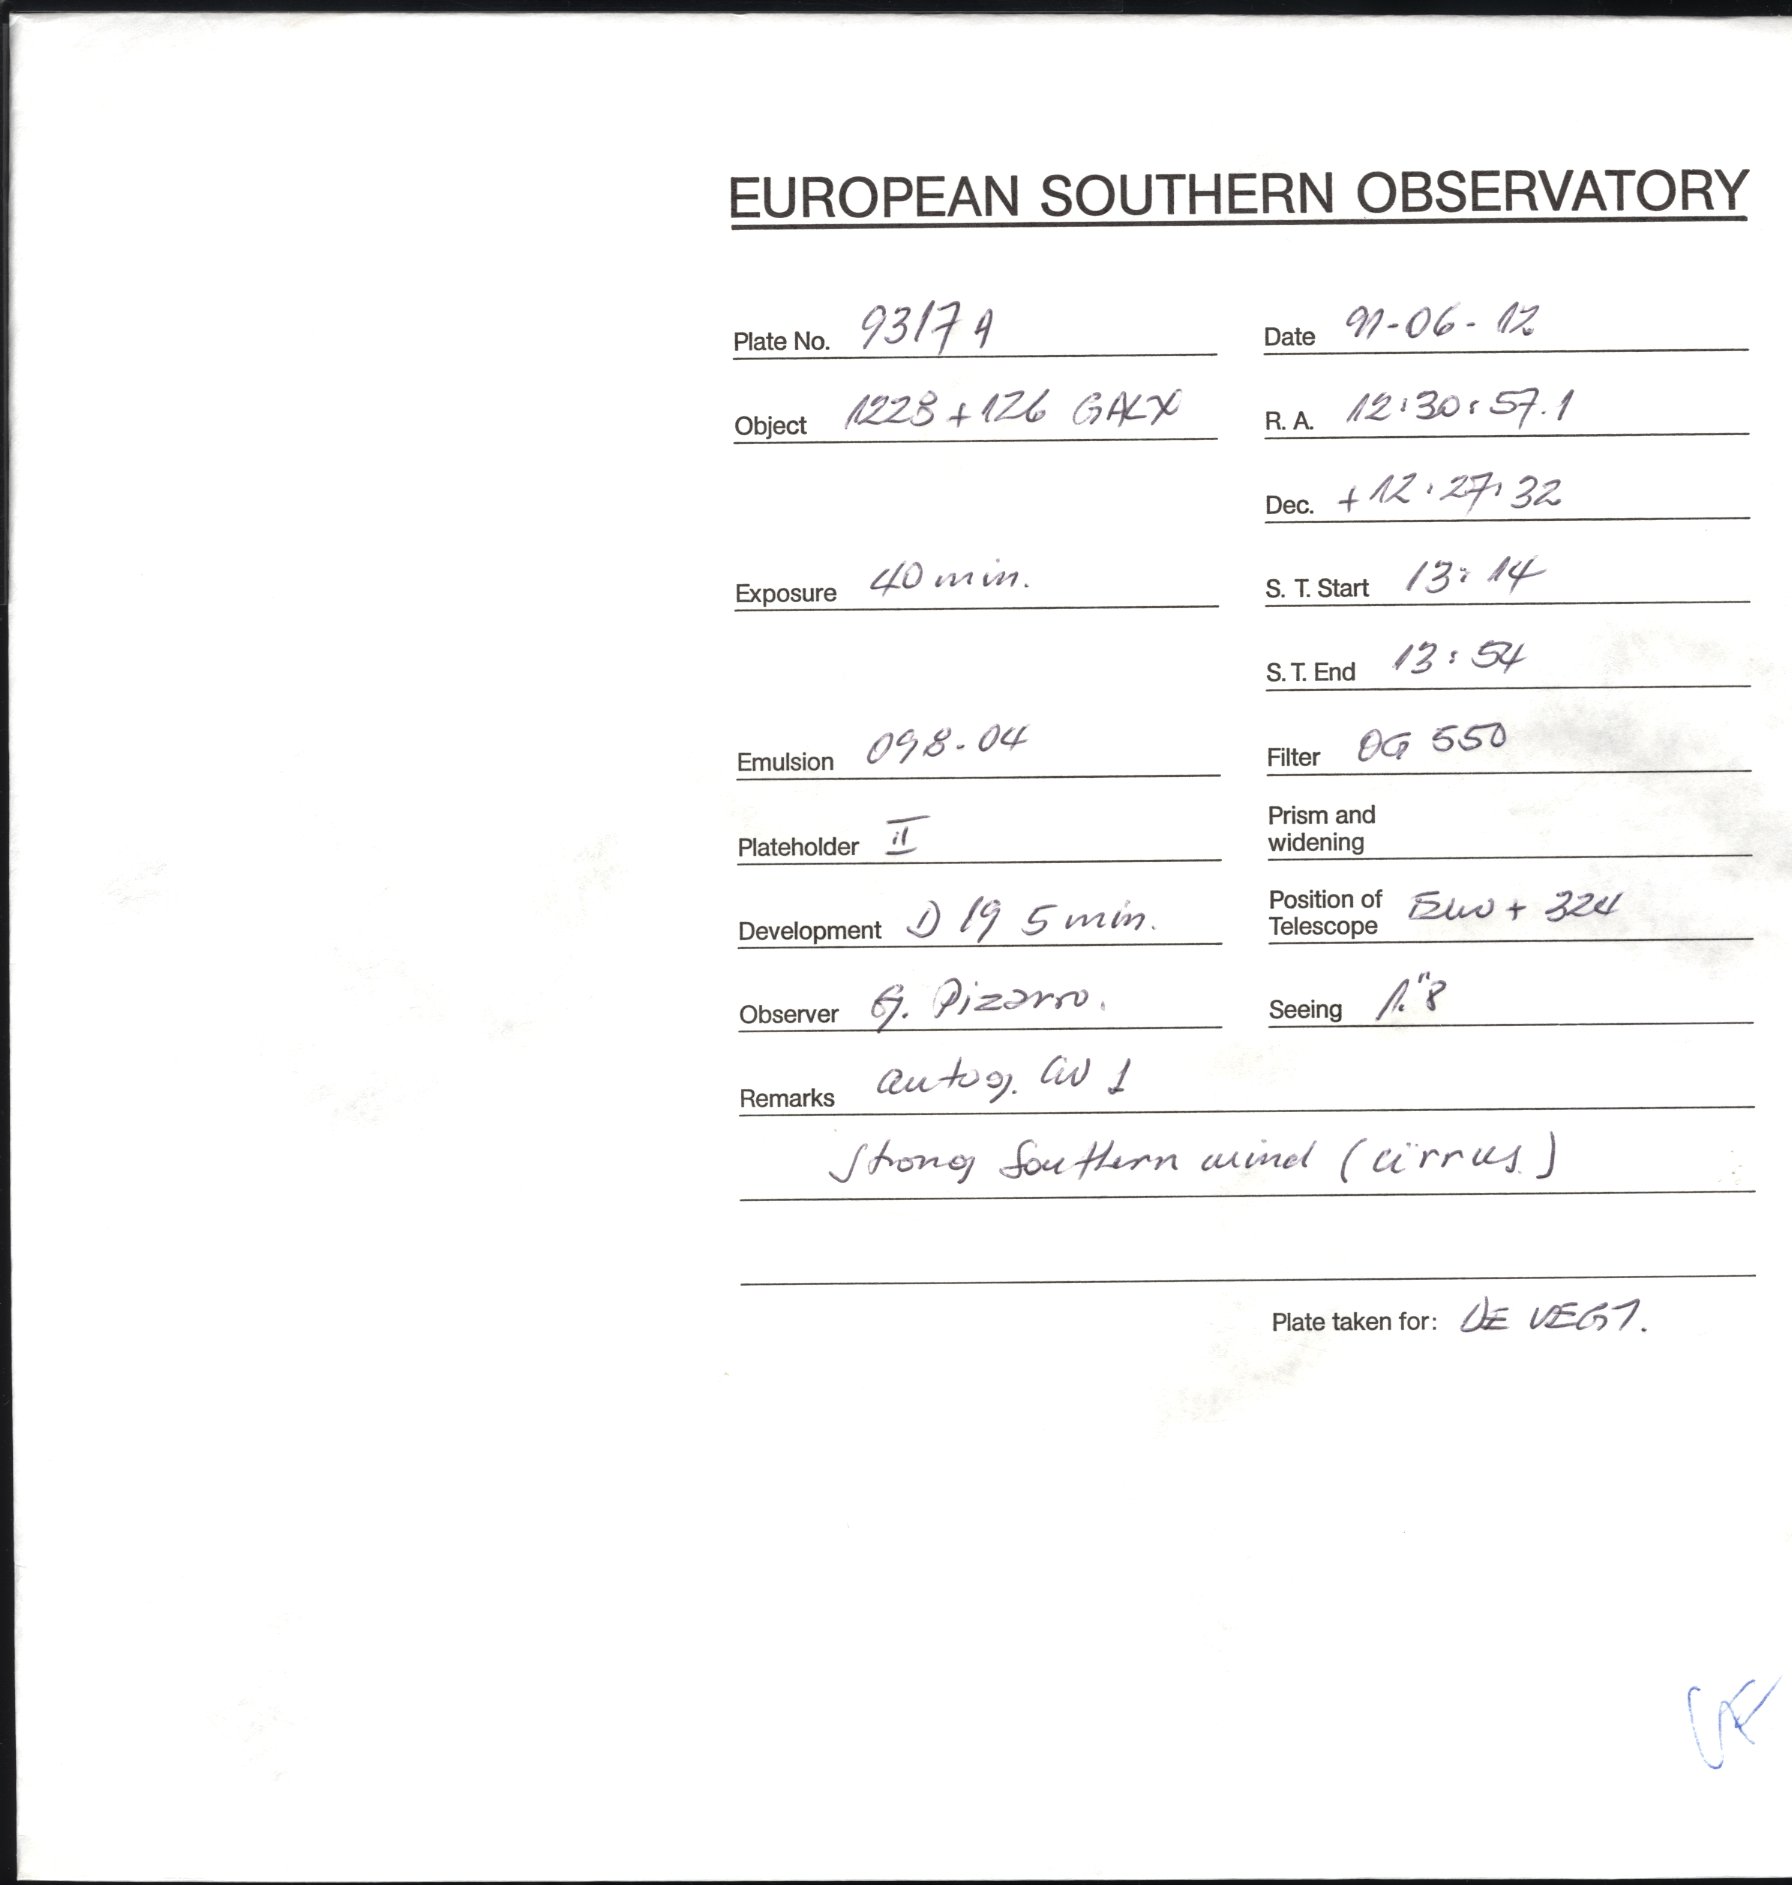 EUROPEAN SOUTHERN OBSERVATORY
Plate No. 9317 A
Date 91-06-12
Object 1228+126 GALX
R. A. 12:30:57.1
Dec. +12:27:32
Exposure 40 min.
S. T. Start 13:14
S. T. End 13:54
Emulsion 098-04
Filter OG 550
Plateholder II
Prism and
widening
Development D 19 5 min.
Position of
Telescope + 324
Observer G. Pizarro.
Seeing 1."8
Remarks autog. 1
strong Southern wind (cirrus.)
Plate taken for: DE VEGT.